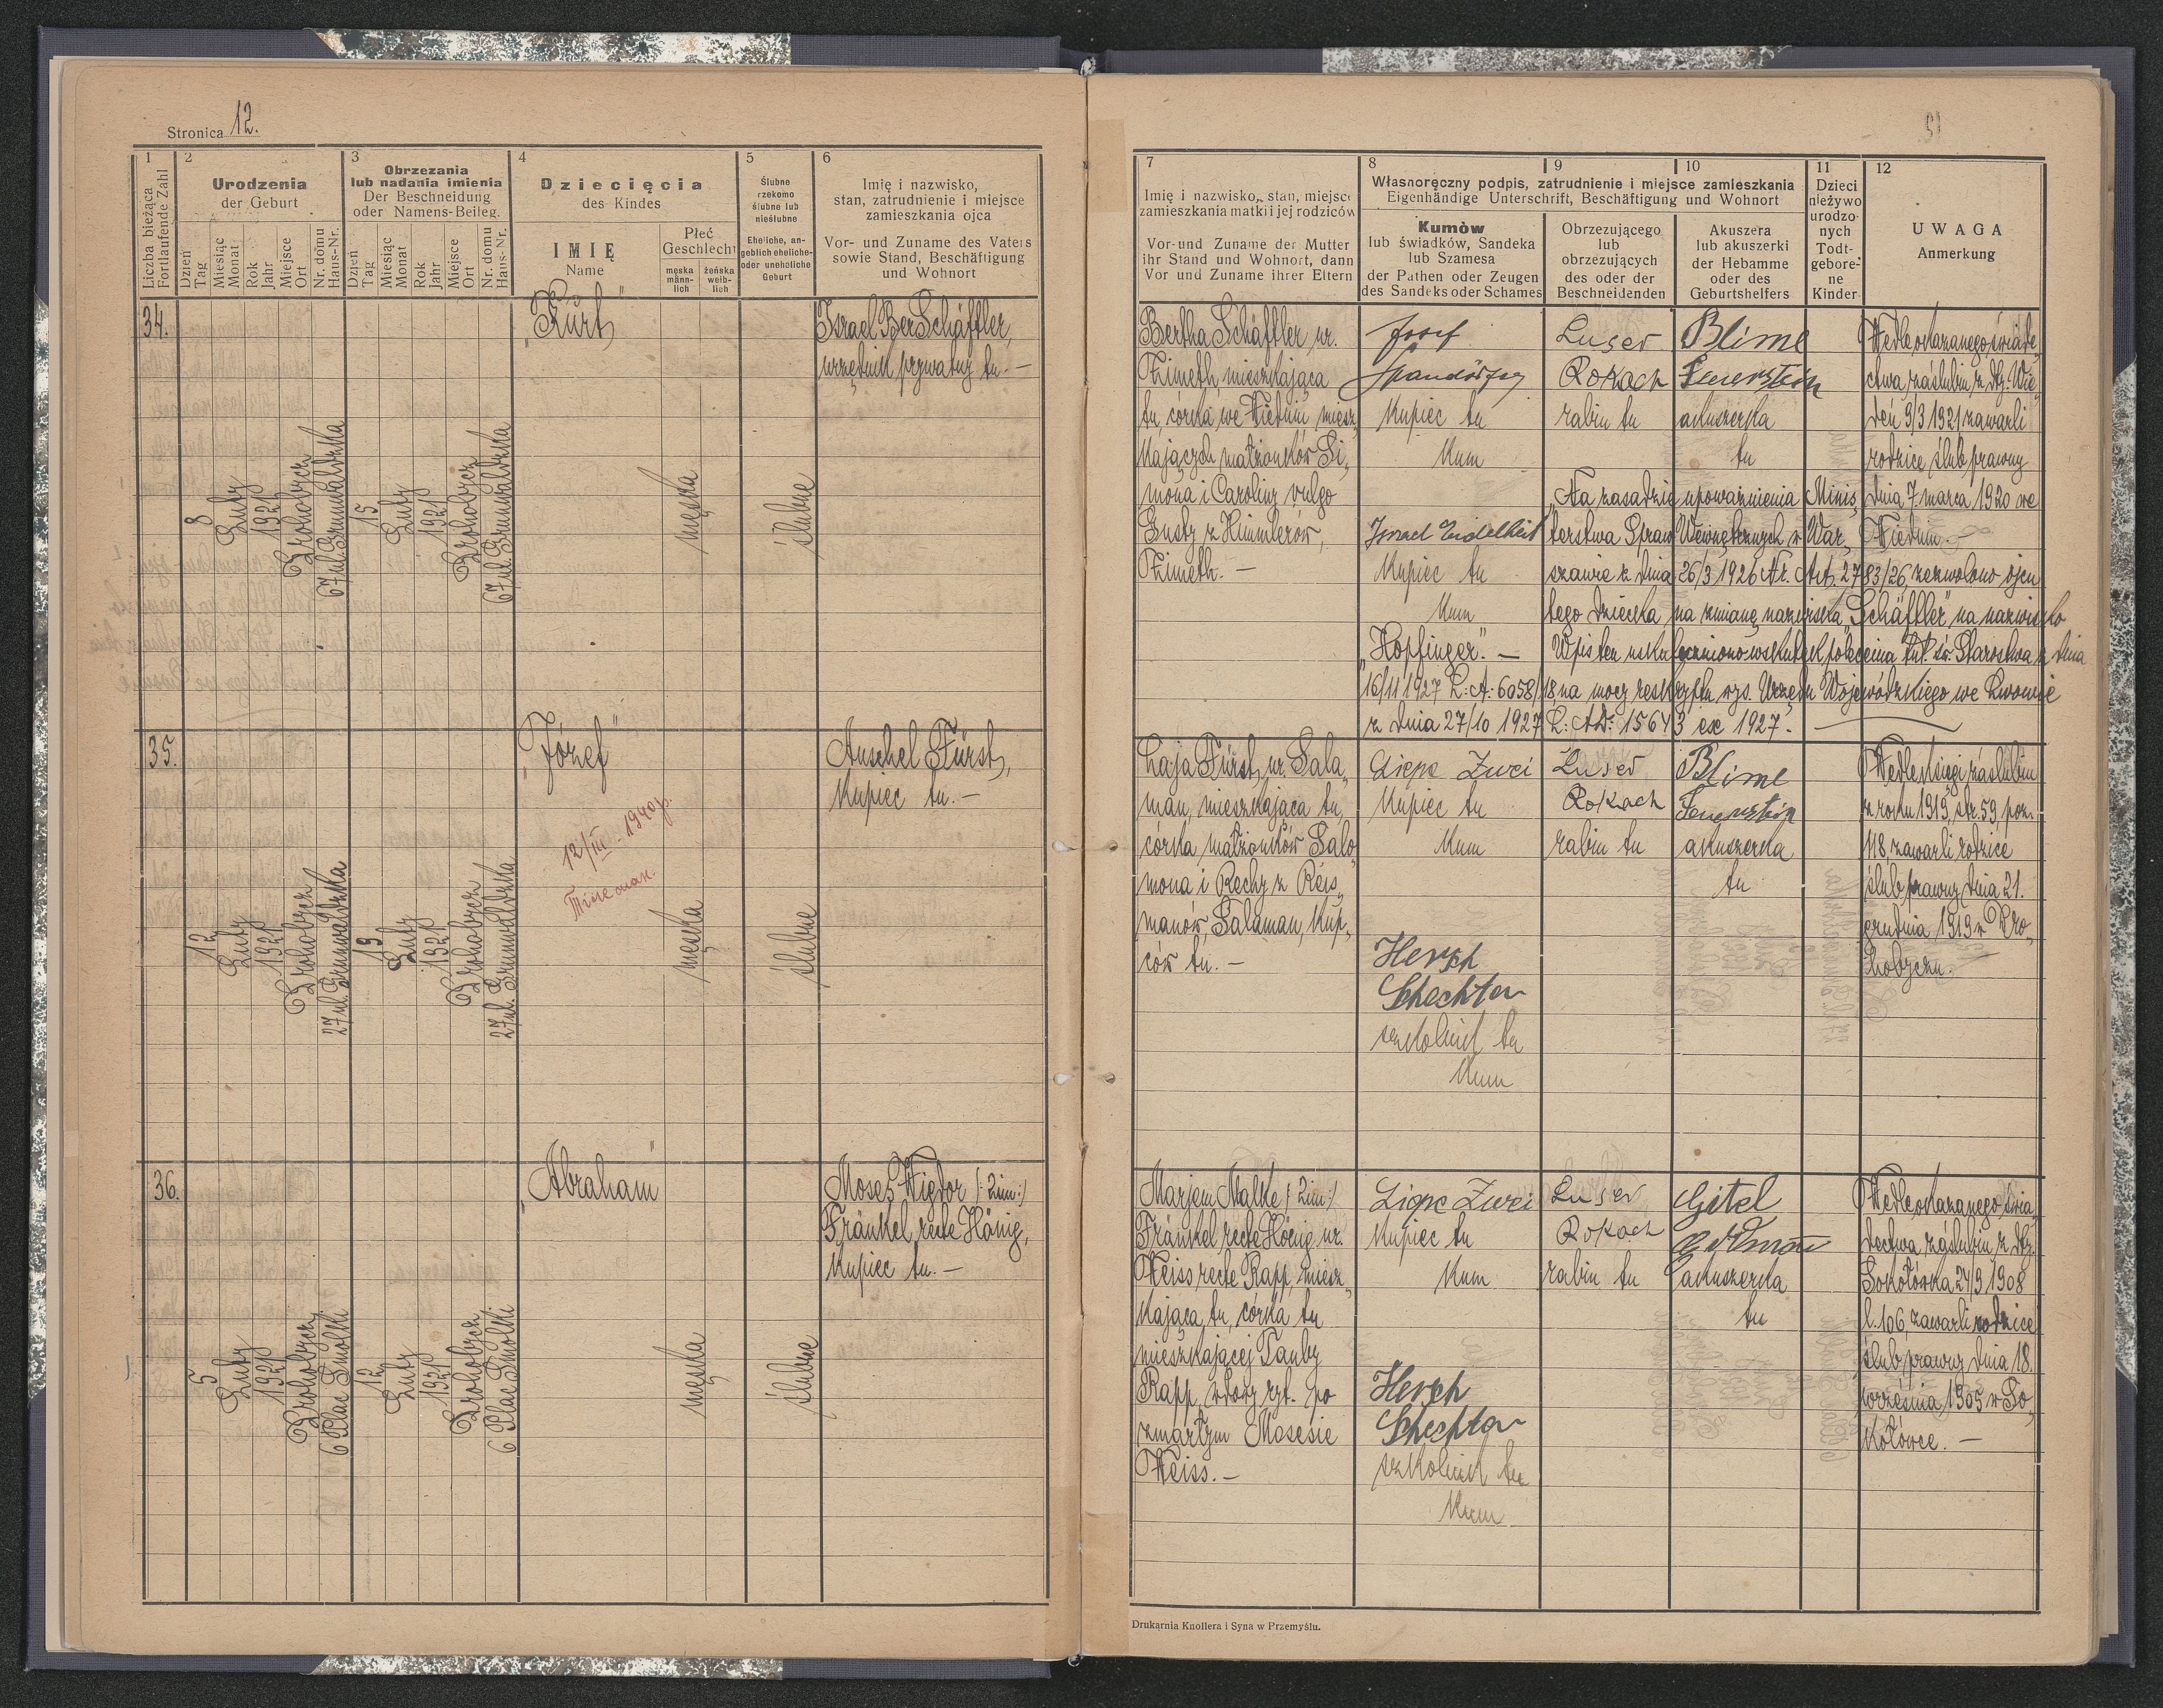 Stronica 12.
1
2
3
4
5
6
Liczba bieżąca
Fortlaufende Zahl
Urodzenia
der Geburt
Obrzezania
lub nadania imienia
Der Beschneidung
oder Namens-Beileg.
Dziecięcia
des Kindes
Ślubne
rzekomo
ślubne lub
nieślubne
Eheliche, an-
geblich eheliche-
oder uneheliche
Geburt
Imię i nazwisko,
stan, zatrudnienie i miejsce
zamieszkania ojca
Vor- und Zuname des Vaters
sowie Stand, Beschäftigung
und Wohnort
Dzień
Tag
Miesiąc
Monat
Rok
Jahr
Miejsce
Ort
Nr. domu
Haus-Nr.
Dzień
Tag
Miesiąc
Monat
Rok
Jahr
Miejsce
Ort
Nr. domu
Haus-Nr.
IMIĘ
Name
Płeć
Geschlecht
męska
männ-
lich
żeńska
weib-
lich
34.
8
Luty
1921
Drohobycz
67 ul. Grunwaldzka
15
Luty
1921
Drohobycz
67 ul. Grunwaldzka
„Kurt"
męska
ślubne
Izrael Ber Schäffler,
urzędnik prywatny tu. —
35.
12
Luty
1921
Drohobycz
27 ul. Grunwaldzka
19
Luty
1921
Drohobycz
27 ul. Grunwaldzka
„Józef"
12/III 1940 r.
męska
ślubne
Anschel Fürst,
Kupiec tu. —
36.
5
Luty
1921
Drohobycz
6 Plac Smolki
12
Luty
1921
Drohobycz
6 Plac Smolki
„Abraham"
męska
ślubne
Moses Wigdor /: 2im :/
Fränkel recte Hönig,
Kupiec tu. —
7
8
9
10
11
12
Imię i nazwisko, stan, miejsce
zamieszkania matki i jej rodziców
Vor- und Zuname der Mutter
ihr Stand und Wohnort, dann
Vor und Zuname ihrer Eltern
Własnoręczny podpis, zatrudnienie i miejsce zamieszkania
Eigenhändige Unterschrift, Beschäftigung und Wohnort
Kumów
lub świadków, Sandeka
lub Szamesa
der Pathen oder Zeugen
des Sandeks oder Schames
Obrzezującego
lub
obrzezujących
des oder der
Beschneidenden
Akuszera
lub akuszerki
der Hebamme
oder des
Geburtshelfers
Dzieci
nieżywo
urodzo-
nych
Todt-
gebore-
ne
Kinder
UWAGA
Anmerkung
Bertha Schäffler ur.
Zimeth mieszkająca
tu, córka we Wiedniu miesz„
kających małżonków Si„
mona i Caroliny vulgo
Gusty z Himmlerów,
Zimeth. —
Josef
Kupiec tu
Kum
Israel Eidelheit
Kupiec tu
Kum
Luser
Rokach
rabin tu
Blime
Feuerstein
akuszerka
tu
Wedle okazanego świade„
ctwa zaślubin z dtg. Wie„
deń 9/3 1921 zawarli
rodzice ślub prawny
dnia 7. marca 1920 we
Wiedniu. —
„Na zasadzie upoważnienia Minis„
terstwa Spraw Wewnętrznych w War„
szawie z dnia 26/3 1926 Nr. Art. 2783/26 zezwolono ojcu
tego dziecka na zmianę nazwiska „Schäffler" na nazwisko
„Hopfinger". — Wpis ten uskuteczniono wskutek polecenia tut. św. Starostwa z dnia
16/11 1927 L: A: 6058/18 na mocy reskryptu wys. Urzędu Wojewódzkiego we Lwowie
z dnia 27/10 1927 L: AD: 15643 ex 1927. —
Laja Fürst, ur. Sala„
man, mieszkająca tu,
córka małżonków Salo„
mona i Rechy z Reis„
manów, Salaman, Kup„
ców tu. —
Lipe Zwei
Kupiec tu
Kum
Hersh
Schechter
szkolnik tu
Kum
Luser
Rokach
rabin tu
Blime
Feuerstein
akuszerka
tu
Wedle księgi zaślubin
z roku 1919, str. 59, poz.
118, zawarli rodzice
ślub prawny dnia 21.
grudnia 1919 w Dro„
hobyczu. —
Marjem Malke /: 2im :/
Fränkel recte Hönig ur.
Weiss recte Rapp, miesz„
kająca tu, córka tu
mieszkającej Tauby
Rapp, wdowy ryt. po
zmarłym Mosesie
Weiss. —
Lipe Zwei
Kupiec tu
Kum
Hersh
Schechter
szkolnik tu
Kum
Luser
Rokach
rabin tu
Gitel
akuszerka
tu
Wedle okazanego świa„
dectwa zaślubin z dtg.
Sokołówka 24/9 1908
l. 106, zawarli rodzice
ślub prawny dnia 18.
września 1905 w So„
kołówce. —
Drukarnia Knollera i Syna w Przemyślu.